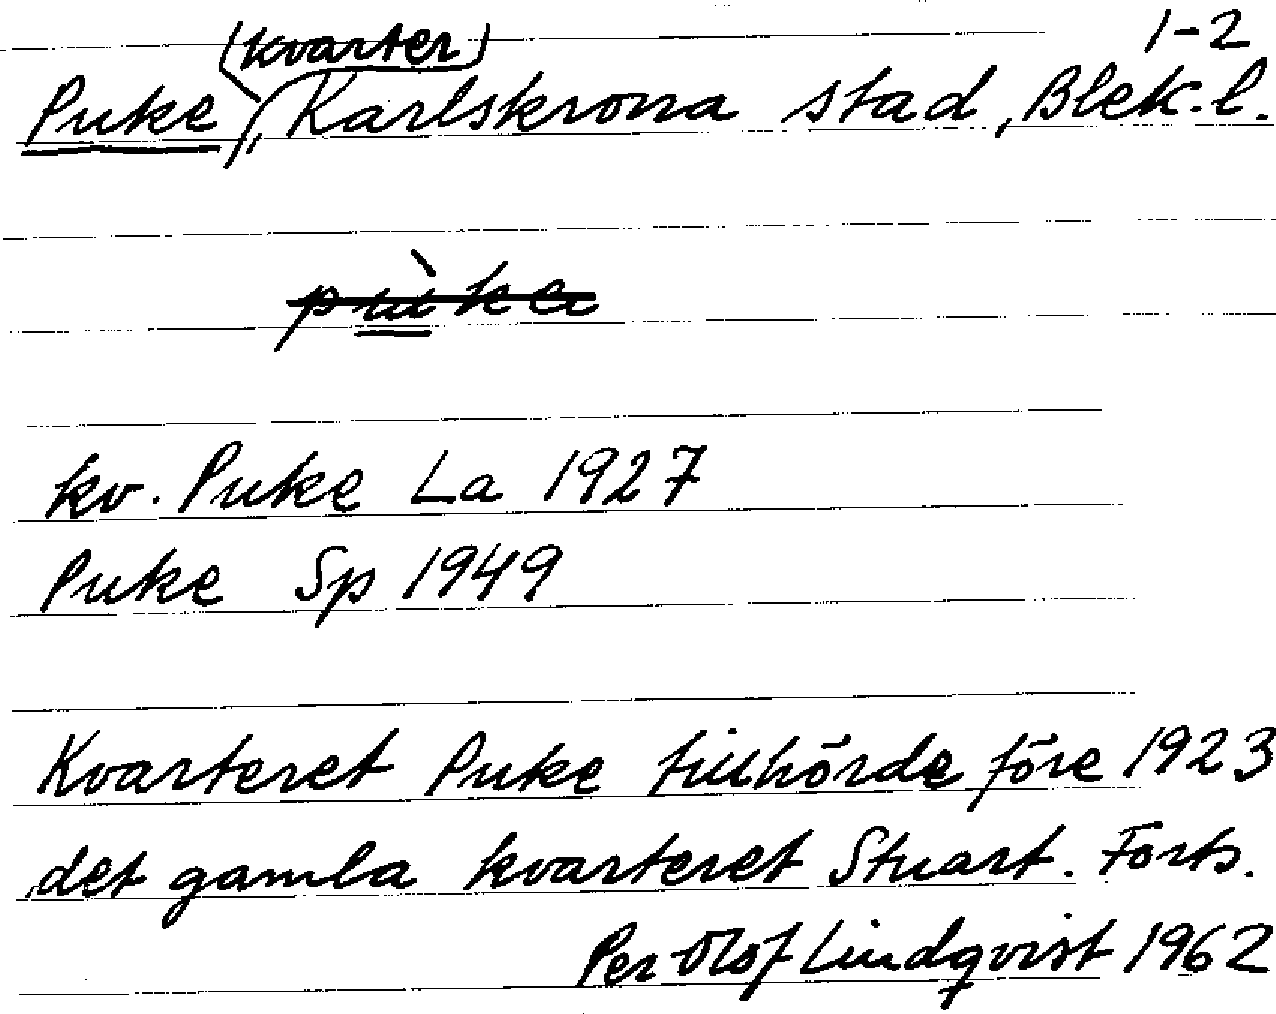 1-2
Puke (kvarter), Karlskrona stad, Blek.l.
kv. Puke La 1927
Puke Sp 1949
Kvarteret Puke tillhörde före 1923
det gamla kvarteret Stuart. Forts.
Per Olof Lindqvist 1962